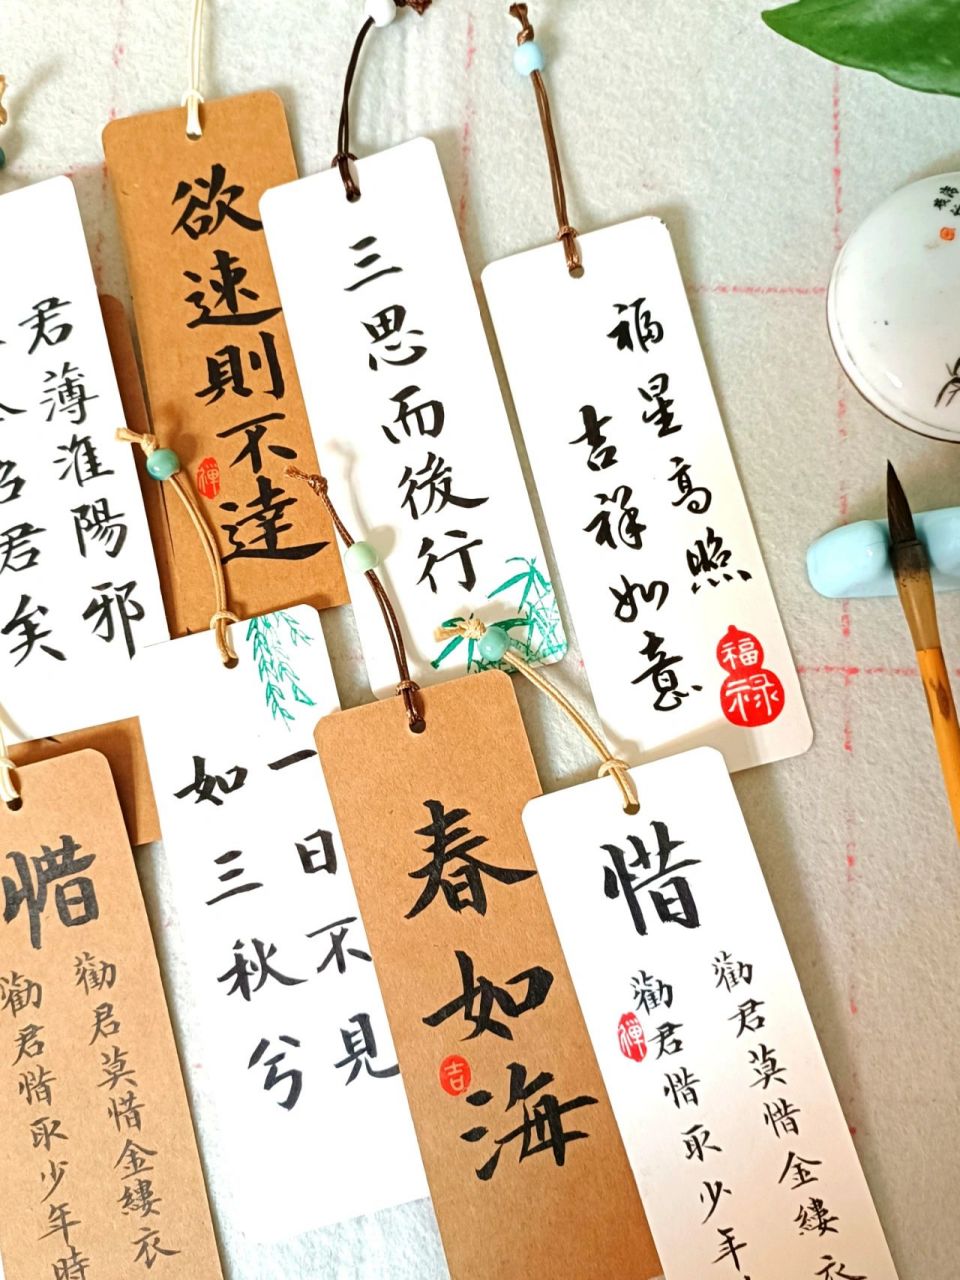 君薄淮陽邪
君矣
欲速則不達
禅
三思而後行
福星高照
吉祥如意
福禄
惜
勸君莫惜金縷衣
勸君惜取少年時
一日不見
如三秋兮
春如海
吉
惜
勸君莫惜金縷衣
勸君惜取少年
禅